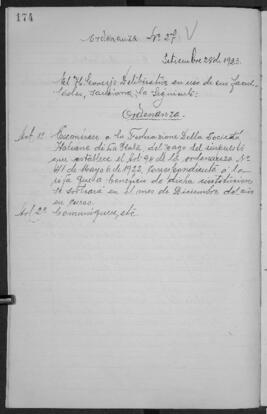 174
Ordenanza Nº 27
Setiembre 28 de 1923.
El H. Concejo Deliberativo en uso de sus facul-
tades, sanciona la siguiente:
Ordenanza.
Art. 1º Exonérase a la Federazione Della Societá
Italiane di La Plata, del pago del impuesto
que establece el Art. 94 de la ordenanza Nº
41 de Mayo 6 de 1922, correspondiente a la
rifa que a beneficio de dicha institucion
se sorteará en el mes de Diciembre del año
en curso.
Art. 2º Comuníquese, etc